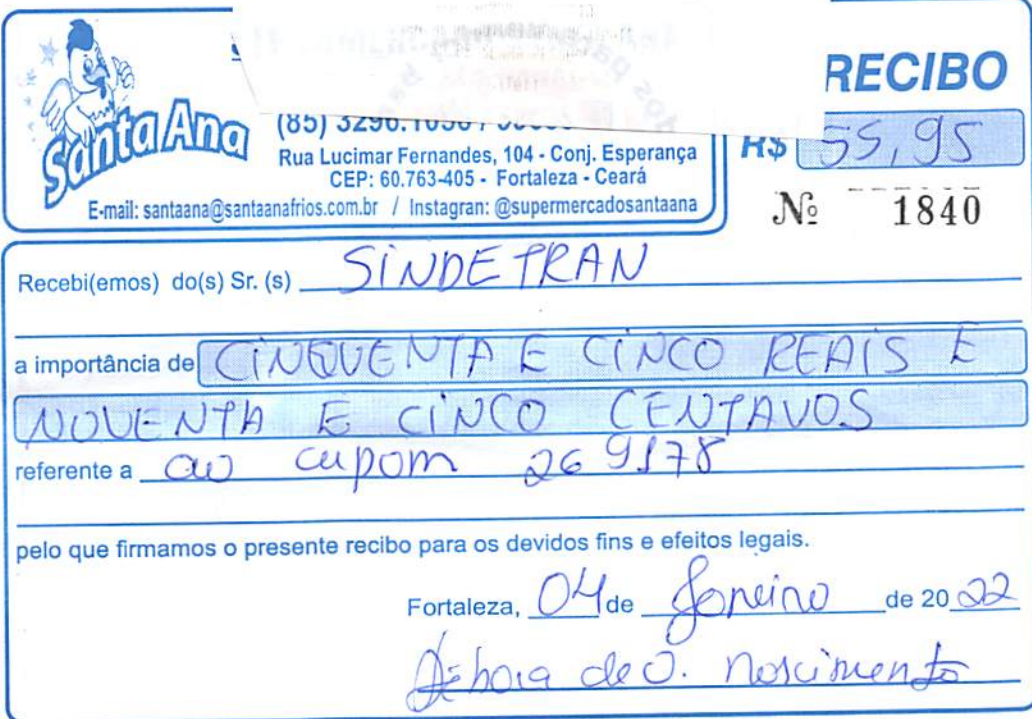 RECIBO
Santa Ana
(85) 3296.1050 /
R$ 55,95
Rua Lucimar Fernandes, 104 - Conj. Esperança
CEP: 60.763-405 - Fortaleza - Ceará
E-mail: santaana@santaanafrios.com.br / Instagran: @supermercadosantaana
Nº 1840
Recebi(emos) do(s) Sr. (s) SINDETRAN
a importância de CINQUENTA E CINCO REAIS E
NOVENTA E CINCO CENTAVOS
referente a ao cupom 269178
pelo que firmamos o presente recibo para os devidos fins e efeitos legais.
Fortaleza, 04 de Janeiro de 2022
Débora de O. Nascimento